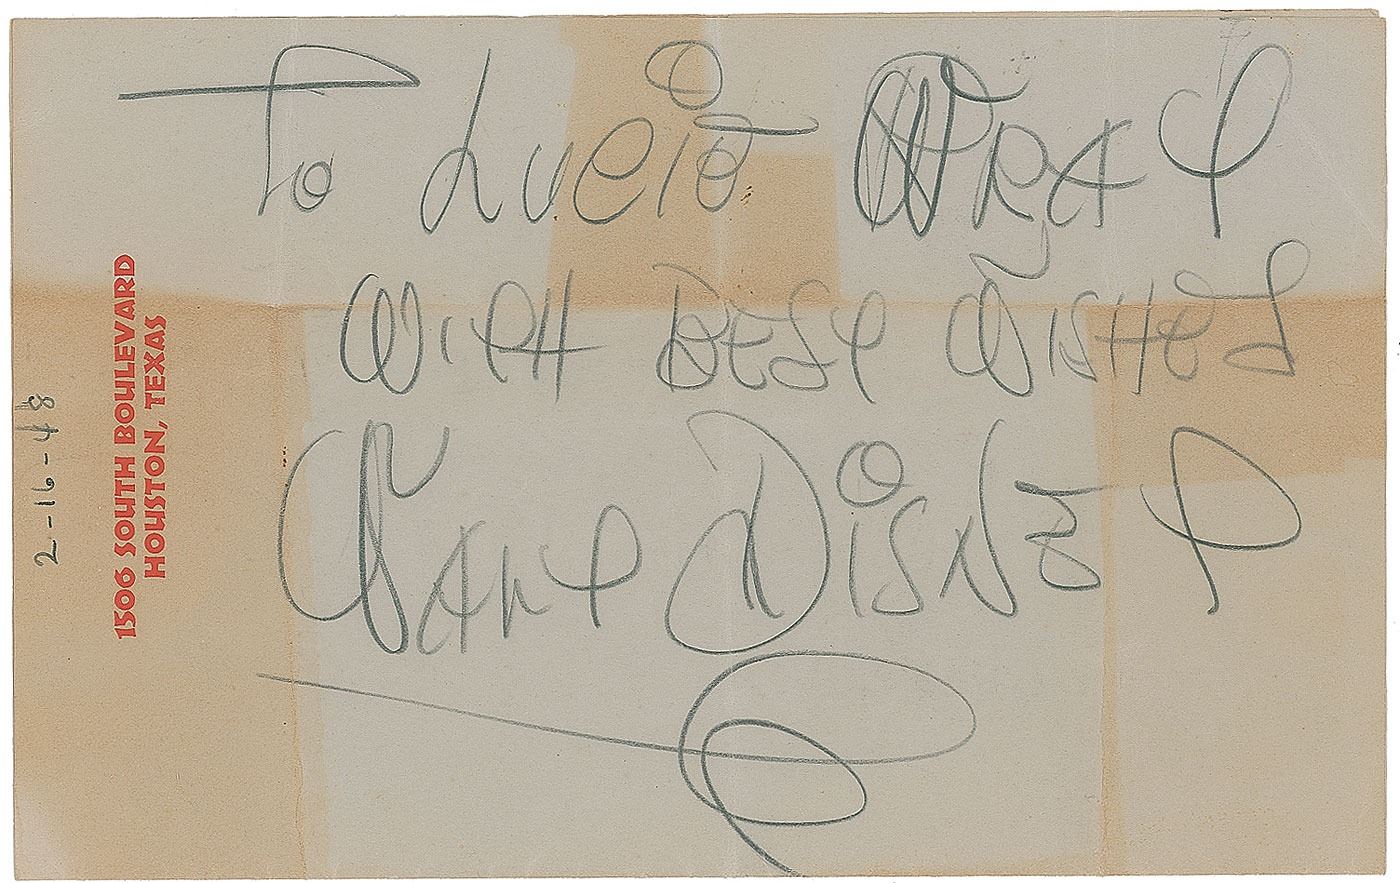 To Lucie Wray
With Best Wishes
Walt Disney
1506 SOUTH BOULEVARD
HOUSTON, TEXAS
2-16-48